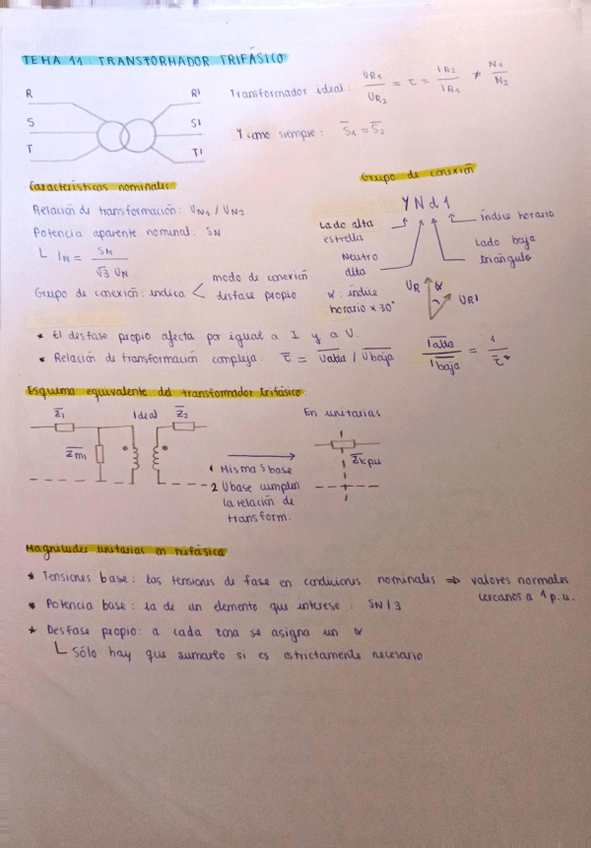 TEMA 11 TRANSFORMADOR TRIFÁSICO
R R'
S S'
T T'
Transformador ideal: UR1/UR2 = τ = IR2/IR1 ≠ N1/N2
Y como siempre: S̄1 = S̄2
Características nominales:
Relación de transformación: UN1 / UN2
Potencia aparente nominal: SN
L IN = SN / √3 UN
Grupo de conexión: indica < modo de conexión
desfase propio
Grupo de conexión
Y N d 1
Lado alta
estrella
índice horario
Neutro
alta
Lado baja
triángulo
α: índice
horario x 30°
UR α UR'
* El desfase propio afecta por igual a I y a U.
* Relación de transformación compleja: τ̄ = Ūalta / Ūbaja Īalta/Ībaja = 1/τ̄*
Esquema equivalente del transformador trifásico:
Z̄1 Ideal Z̄2
Z̄m1
1 Misma S base
2 Ubase cumplen
la relación de
transform.
En unitarias
Z̄k pu
Magnitudes unitarias en trifásica
* Tensiones base: las tensiones de fase en condiciones nominales ⇒ valores normales
cercanos a 1 p.u.
* Potencia base: la de un elemento que interese: SN/3
* Desfase propio: a cada zona se asigna un α
L Sólo hay que sumarlo si es estrictamente necesario